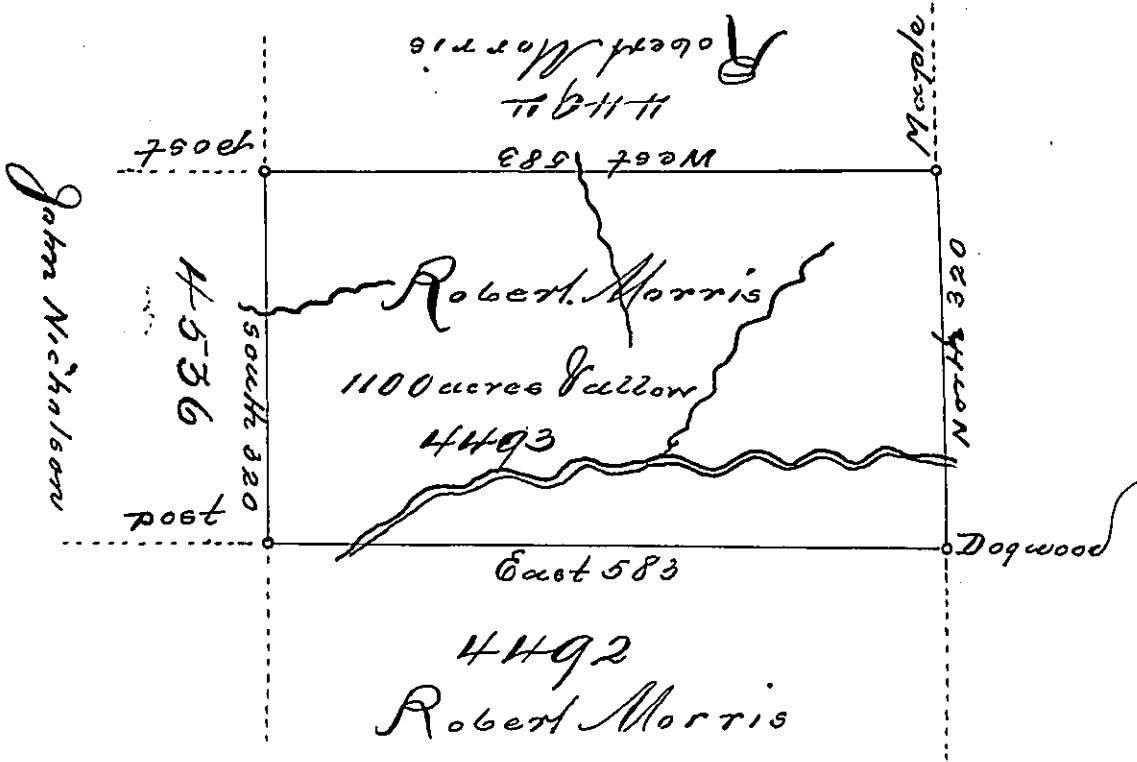 Robert Morris
Maple
West 583
post
John Nicholson
4536
South 320
Robert Morris
1100 acres & allow
4493
North 320
post
East 583
Dogwood
4492
Robert Morris